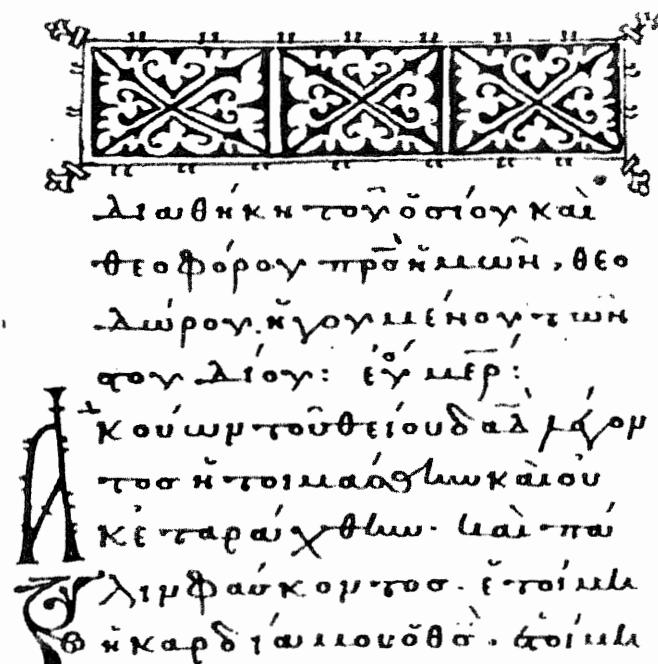 Διαθήκη τοῦ ὁσίου καὶ
θεοφόρου πρ̅ς ἡμῶν, θεο
δώρου ἡγουμένου τῶν
στουδίου: εὐ πε̅ρ:
Ἀκούων τοῦ θείου δα̅δ λέγον
τος ἡτοιμάσθην καὶ οὐ
κ ἐταράχθην· καὶ πά
λιν φάσκοντος· ἑτοίμη
ἡ καρδία μου ὁ θ̅ς· ἑτοίμη